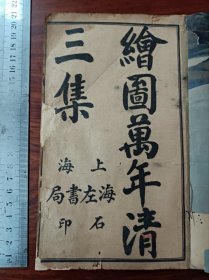 繪圖萬年清
三集
上海
海左書局
石印